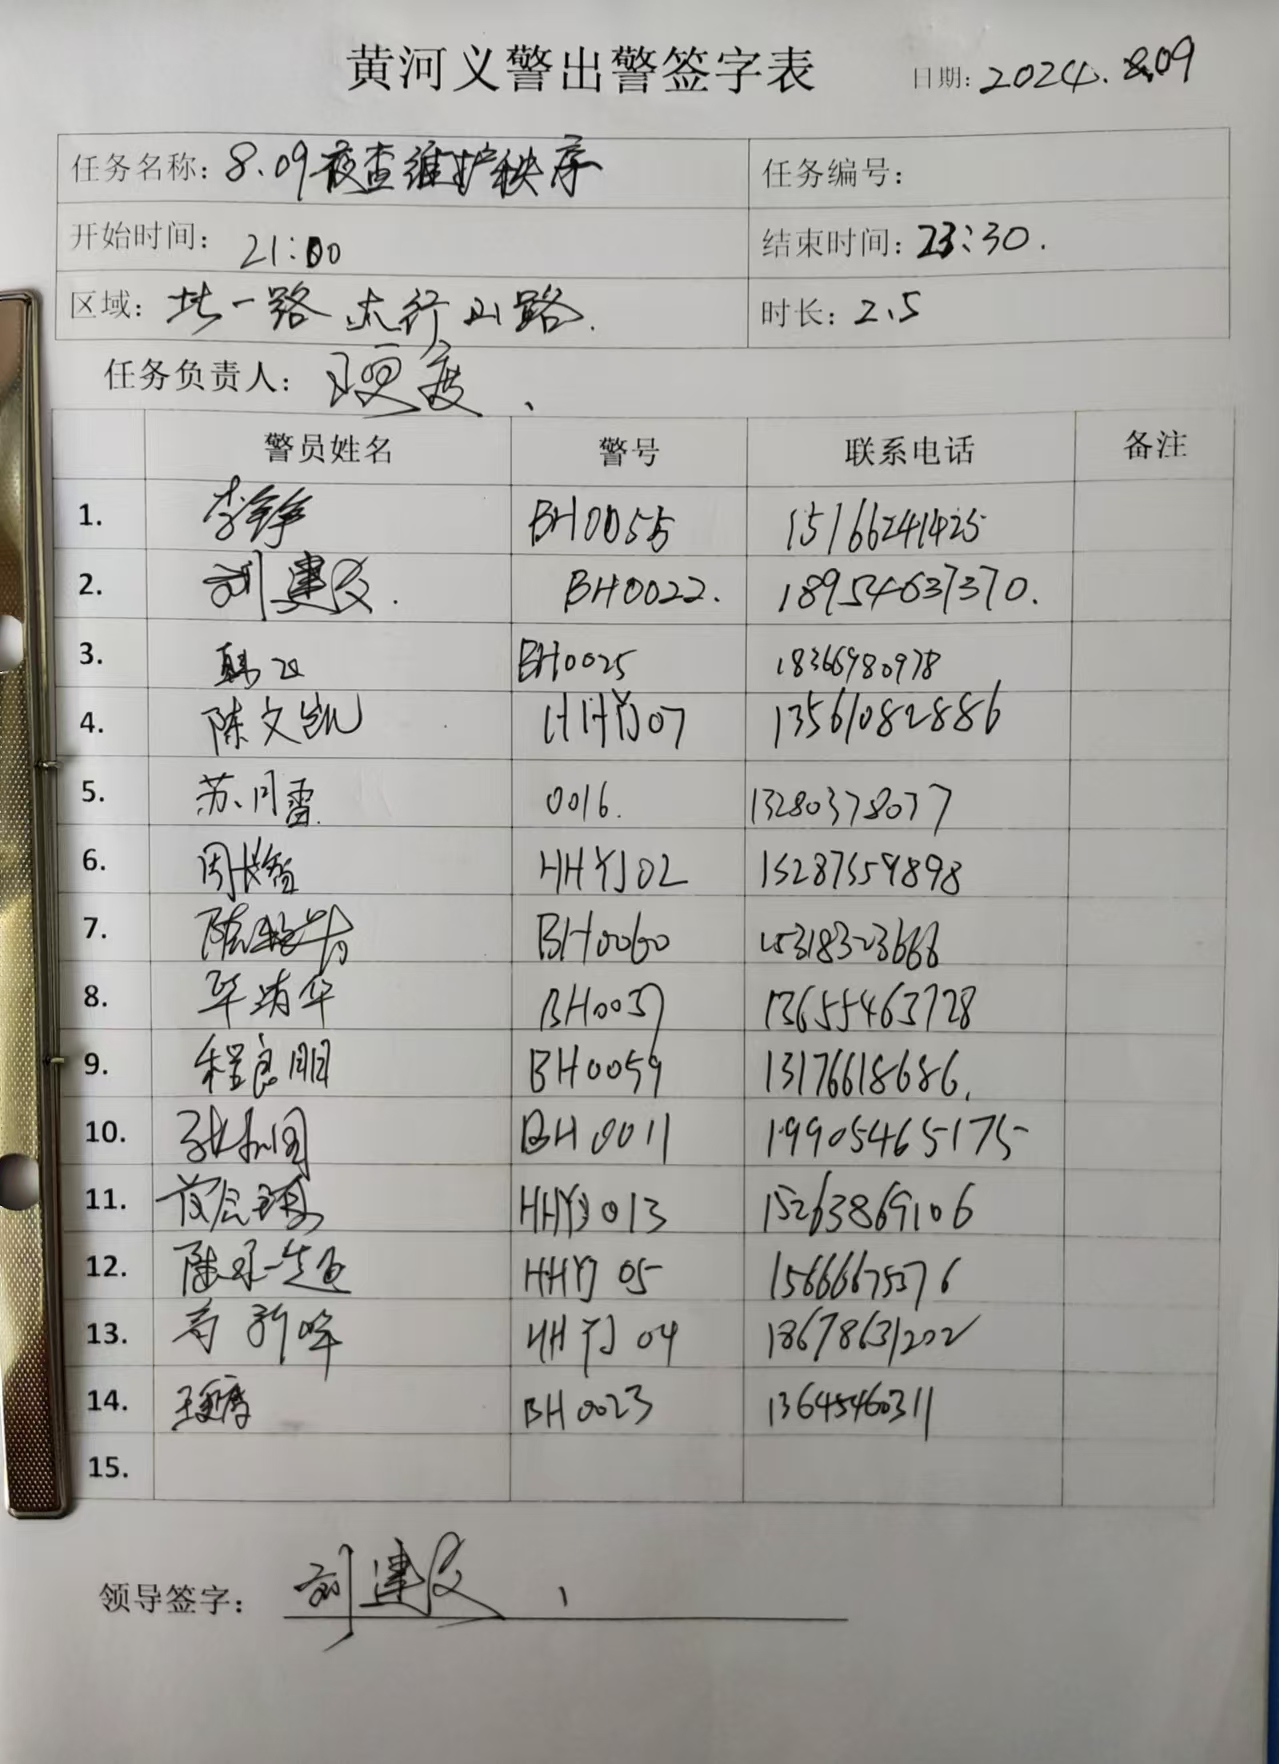 黄河义警出警签字表 日期: 2024.8.09
任务名称: 8.09夜查维护秩序 任务编号:
开始时间: 21:00 结束时间: 23:30.
区域: 北一路 太行山路. 时长: 2.5
任务负责人: 王更度
警员姓名 警号 联系电话 备注
1. 李铮 BH0055 15166241425
2. 刘建文. BH0022. 18954637370.
3. BH0025 18366980978
4. 陈文凯 HHYJ07 13561082886
5. 苏同雷 0016. 13280378077
6. 周长智 HHYJ02 15287559898
7. BH0060 15318323666
8. 毕清华 BH0037 13655463728
9. 程良朋 BH0059 13176618686.
10. BH0011 19905465175
11. HHYJ013 15263869106
12. HHYJ 05 15666675376
13. HHYJ 04 18678631202
14. 王更度 BH0023 13645460311
15.
领导签字: 刘建文